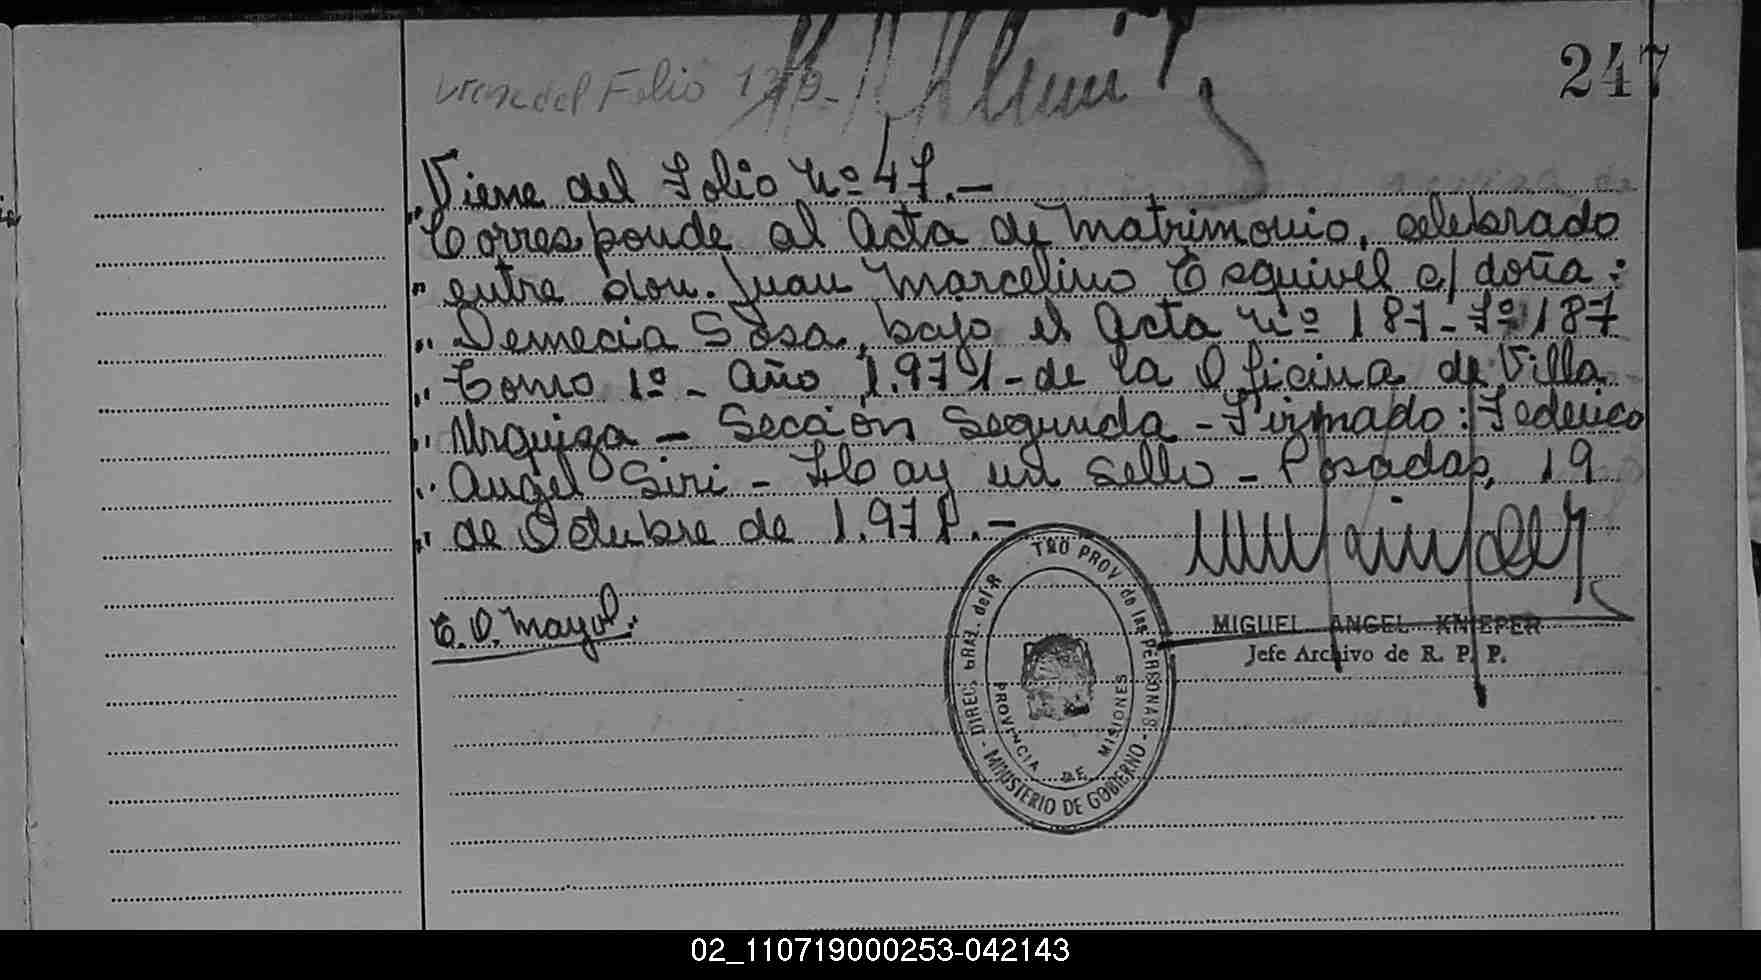 247
Viene del Folio Nº 47.-
" Corresponde al Acta de Matrimonio, celebrado
" entre don. Juan Marcelino Esquivel c/ doña:
" Demecia Sosa, bajo el Acta Nº 187- Fº 187
" Tomo 1º- Año 1.971- de la Oficina de Villa
" Urquiza - Sección Segunda - Firmado: Federico
" Angel Siri - Hay un Sello - Posadas, 19
" de Octubre de 1.971.-
E. O. Mayol.
DIREC. GRAL. del R TRO PROV de las PERSONAS - MINISTERIO DE GOBIERNO -
PROVINCIA DE MISIONES
MIGUEL ANGEL KNIEPER
Jefe Archivo de R. P. P.
02_110719000253-042143